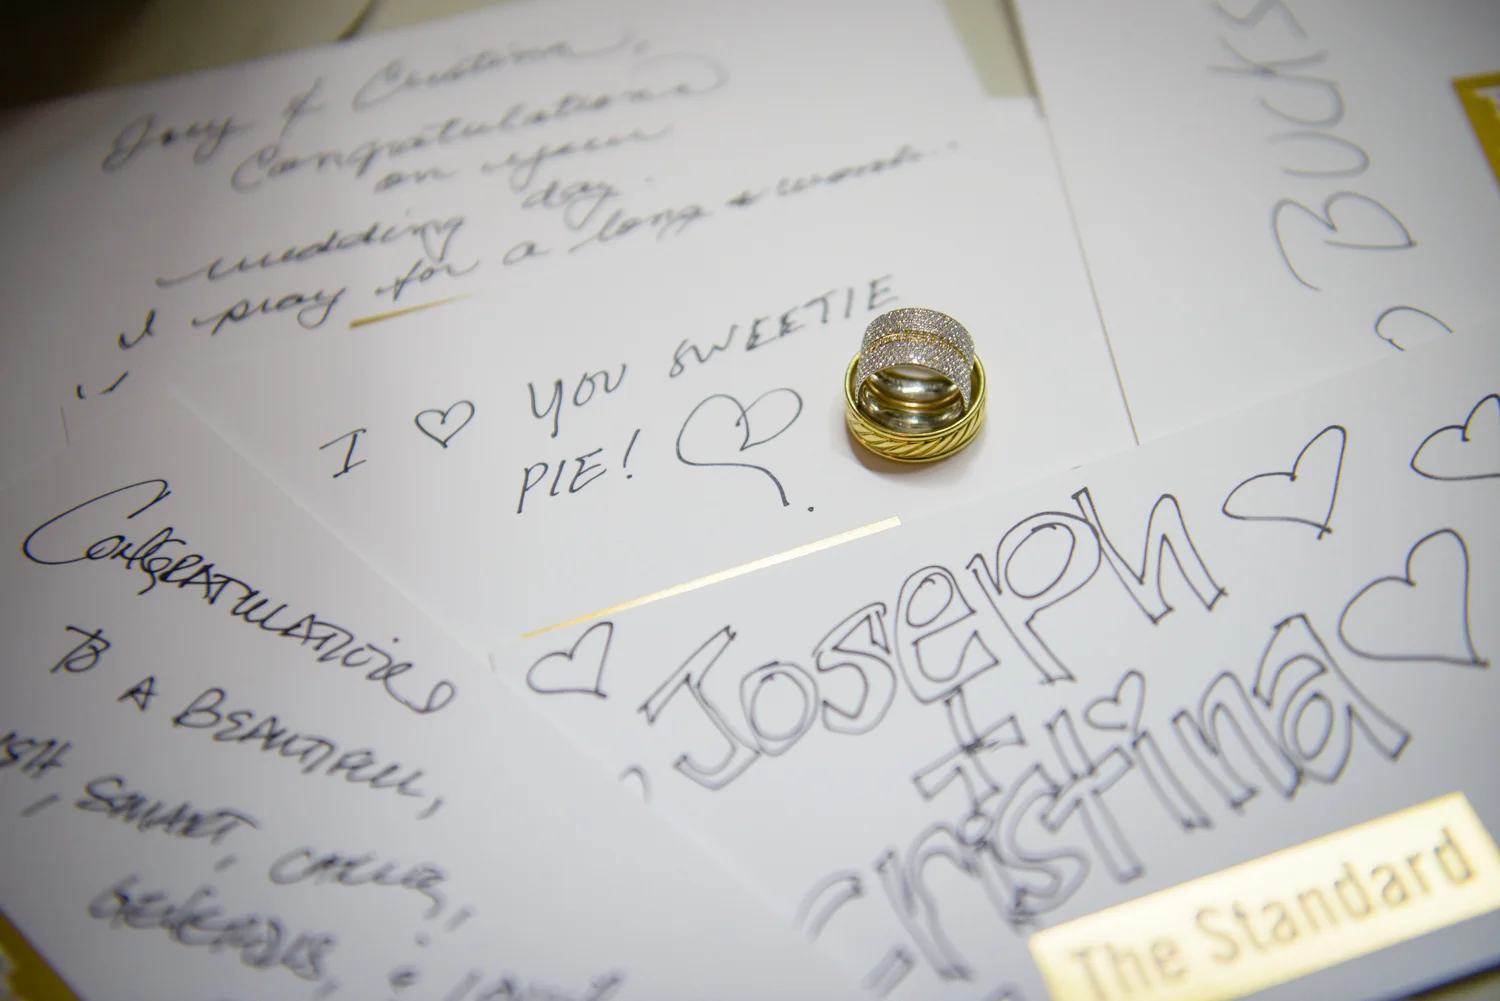 Joey & Cristina,
Congratulations
on your
wedding day.
I pray for a long &
BUCKS
I ♡ YOU SWEETIE
PIE!
CONGRATULATIONS
TO A BEAUTIFUL,
SMART, CARING,
GENEROUS, &
Joseph
+
Cristina
The Standard